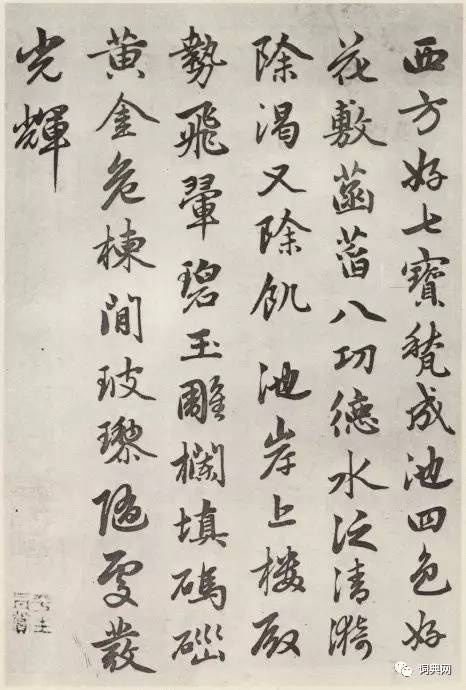 西方好七寶甃成池四色好
花敷菡萏八功德水泛清漪
除渴又除飢 池岸上樓殿
勢飛翬碧玉雕欄填碼碯
黃金危棟間玻瓈隨處發
光輝
词典网